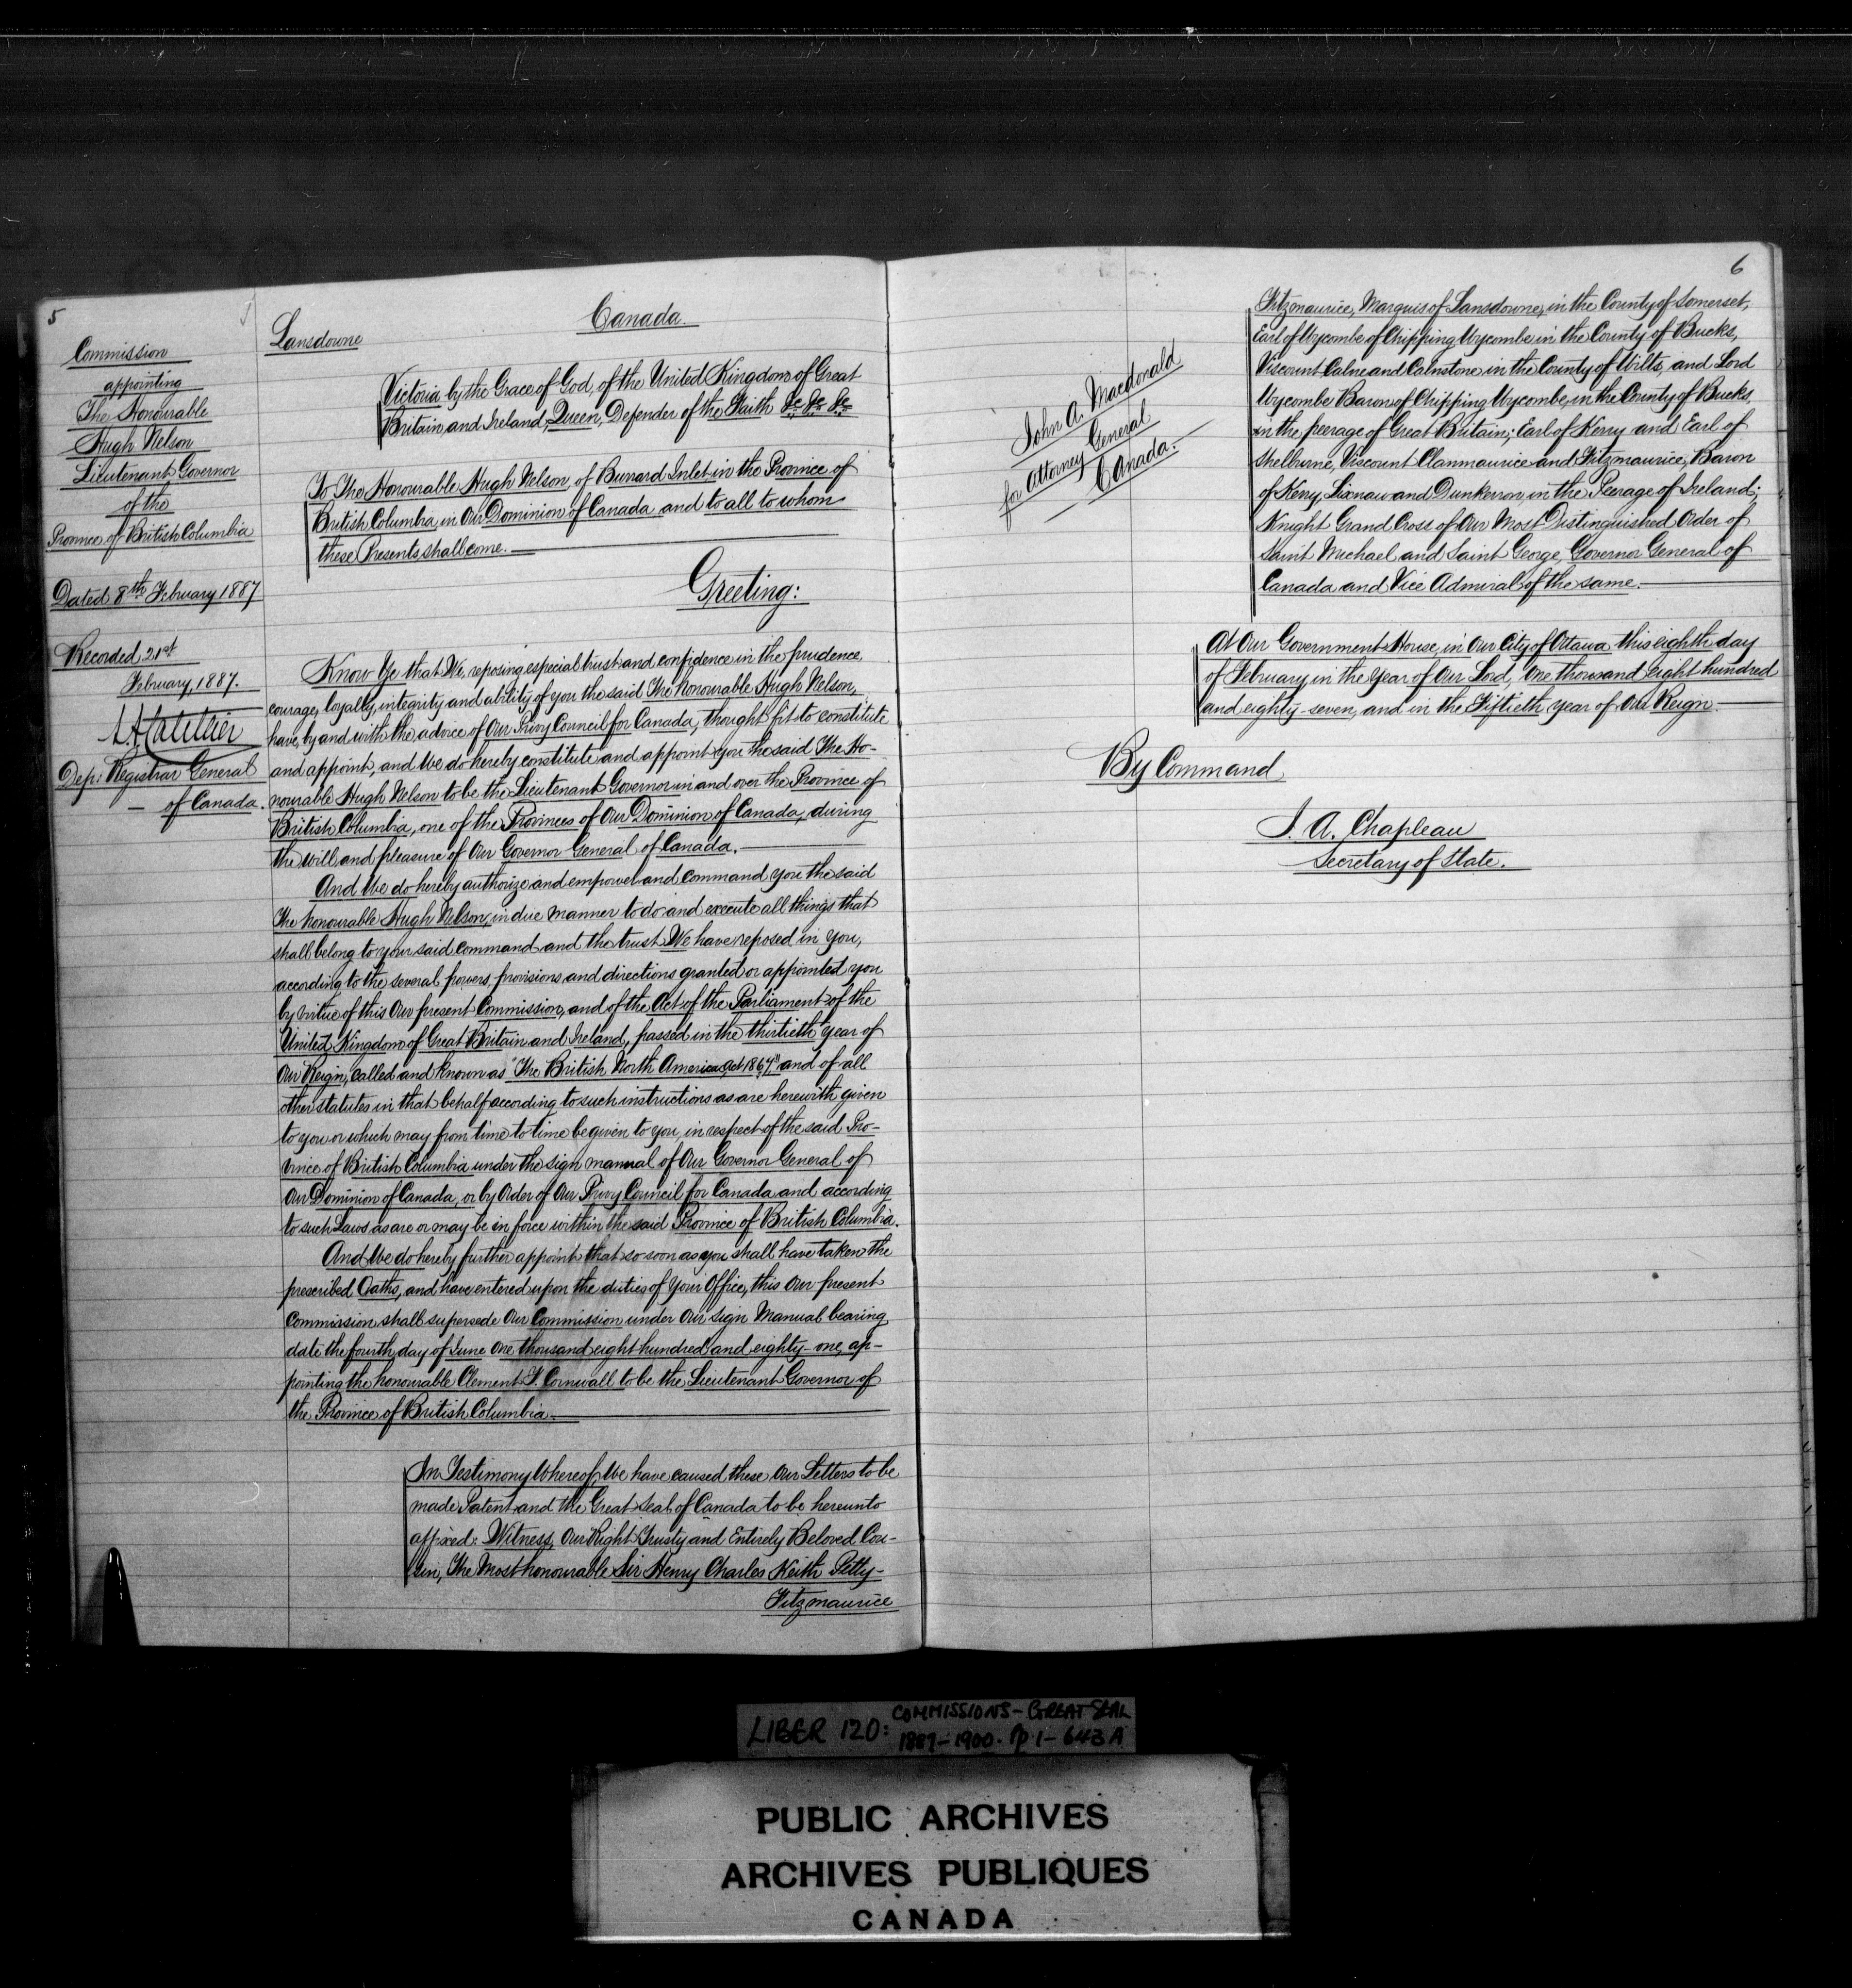 5
Commission
appointing
The Honourable
Hugh Nelson
Lieutenant Governor
of the
Province of British Columbia
Dated 8th February 1887
Recorded 21st
February, 1887.
Dep: Registrar General
of Canada.
Lansdowne
Canada.
Victoria by the Grace of God, of the United Kingdom of Great
Britain and Ireland, Queen, Defender of the Faith &c &c &c
To The Honourable Hugh Nelson, of Burrard Inlet in the Province of
British Columbia, in Our Dominion of Canada and to all to whom
these Presents shall come.
Greeting:
Know Ye that We, reposing especial trust and confidence in the prudence,
courage, loyalty, integrity and ability of you the said The Honourable Hugh Nelson,
have, by and with the advice of Our Privy Council for Canada, thought fit to constitute
and appoint, and We do hereby constitute and appoint you the said The Ho-
nourable Hugh Nelson to be the Lieutenant Governor in and over the Province of
British Columbia, one of the Provinces of Our Dominion of Canada, during
the will and pleasure of Our Governor General of Canada.
And We do hereby authorize and empower and command you the said
The Honourable Hugh Nelson, in due manner to do and execute all things that
shall belong to your said command and the trust We have reposed in you,
according to the several powers, provisions and directions granted or appointed you
by virtue of this Our present Commission, and of the Act of the Parliament of the
United Kingdom of Great Britain and Ireland, passed in the thirtieth year of
Our Reign, called and known as "The British North America Act 1867" and of all
other statutes in that behalf according to such instructions as are herewith given
to you or which may from time to time be given to you, in respect of the said Pro-
vince of British Columbia under the sign manual of Our Governor General of
Our Dominion of Canada, or by Order of Our Privy Council for Canada and according
to such Laws as are or may be in force within the said Province of British Columbia.
And We do hereby further appoint that so soon as you shall have taken the
prescribed Oaths, and have entered upon the duties of Your Office, this Our present
Commission shall supersede Our Commission under Our Sign Manual bearing
date the fourth day of June One thousand eight hundred and eighty-one, ap-
pointing the honourable Clement F. Cornwall to be the Lieutenant Governor of
the Province of British Columbia
In Testimony Whereof, We have caused these Our Letters to be
made Patent and the Great Seal of Canada to be hereunto
affixed: Witness, Our Right Trusty and Entirely Beloved Cou-
sin, The Most honourable Sir Henry Charles Keith Petty-
Fitzmaurice
6
John A. Macdonald
for Attorney General
Canada.
Fitzmaurice, Marquis of Lansdowne, in the County of Somerset,
Earl of Wycombe of Chipping Wycombe in the County of Bucks,
Viscount Calne and Calnstone in the County of Wilts, and Lord
Wycombe Baron of Chipping Wycombe, in the County of Bucks,
in the peerage of Great Britain; Earl of Kerry and Earl of
Shelburne, Viscount Clanmaurice and Fitzmaurice, Baron
of Kerry, Lixnaw and Dunkerron, in the Peerage of Ireland;
Knight Grand Cross of Our Most Distinguished Order of
Saint Michael and Saint George, Governor General of
Canada and Vice Admiral of the same.
At Our Government House, in Our City of Ottawa this eighth day
of February in the year of Our Lord, One thousand eight hundred
and eighty-seven, and in the Fiftieth year of Our Reign
By Command
J. A. Chapleau
Secretary of State.
LIBER 120: COMMISSIONS - GREAT SEAL
1887-1900. pp 1-643A
PUBLIC ARCHIVES
ARCHIVES PUBLIQUES
CANADA